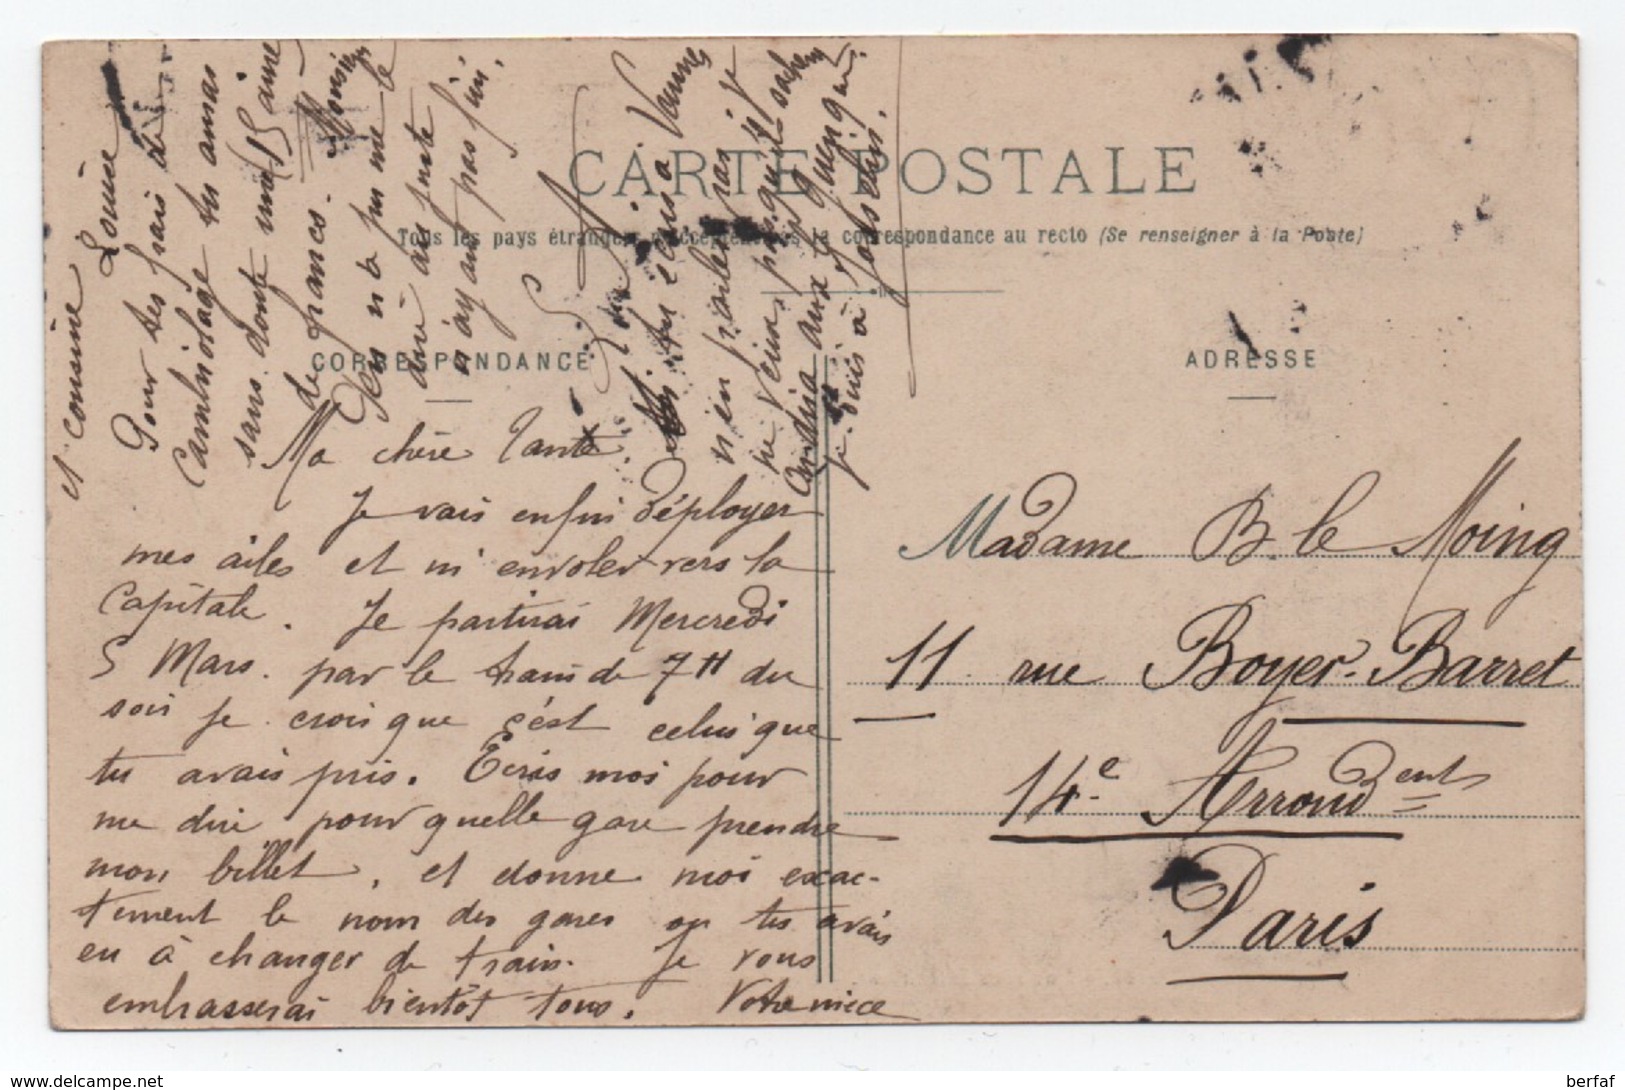 CARTE POSTALE
Tous les pays étrangers n'acceptent pas la correspondance au recto (Se renseigner à la Poste)
CORRESPONDANCE
ADRESSE
Ma chère Tante.
Je vais enfin déployer
mes ailes et m'envoler vers la
Capitale. Je partirai Mercredi
5 Mars. par le train de 7H du
soir je crois que c'est celui que
tu avais pris. Ecris moi pour
me dire pour quelle gare prendre
mon billet, et donne moi exac-
tement le nom des gares ou tu avais
eu à changer de train. Je vous
embrasserai bientôt tous. Votre nièce
et cousine Louise
Pour tes frais de
Cambriolage tu auras
sans doute une 15aine
de francs. Monsieur
Den n'a pu me le
dire au juste
n'ayant pas fini.
Si tu écris à Vannes
n'en parle pas je
ne veux pas qu'ils sachent
à Josselin.
Madame B. le Moing
11 rue Boyer-Barret
14e Arrondent
Paris
delcampe.net
berfaf